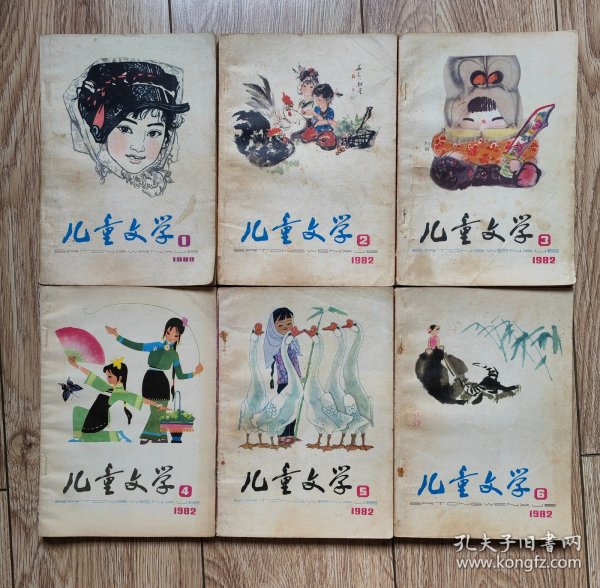 儿童文学 1
ERTONGWENXUE
1989
儿童文学 2
ERTONGWENXUE
1982
儿童文学 3
ERTONGWENXUE
1982
儿童文学 4
ERTONGWENXUE
1982
儿童文学 5
ERTONGWENXUE
1982
儿童文学 6
ERTONGWENXUE
1982
孔夫子旧书网
www.kongfz.com